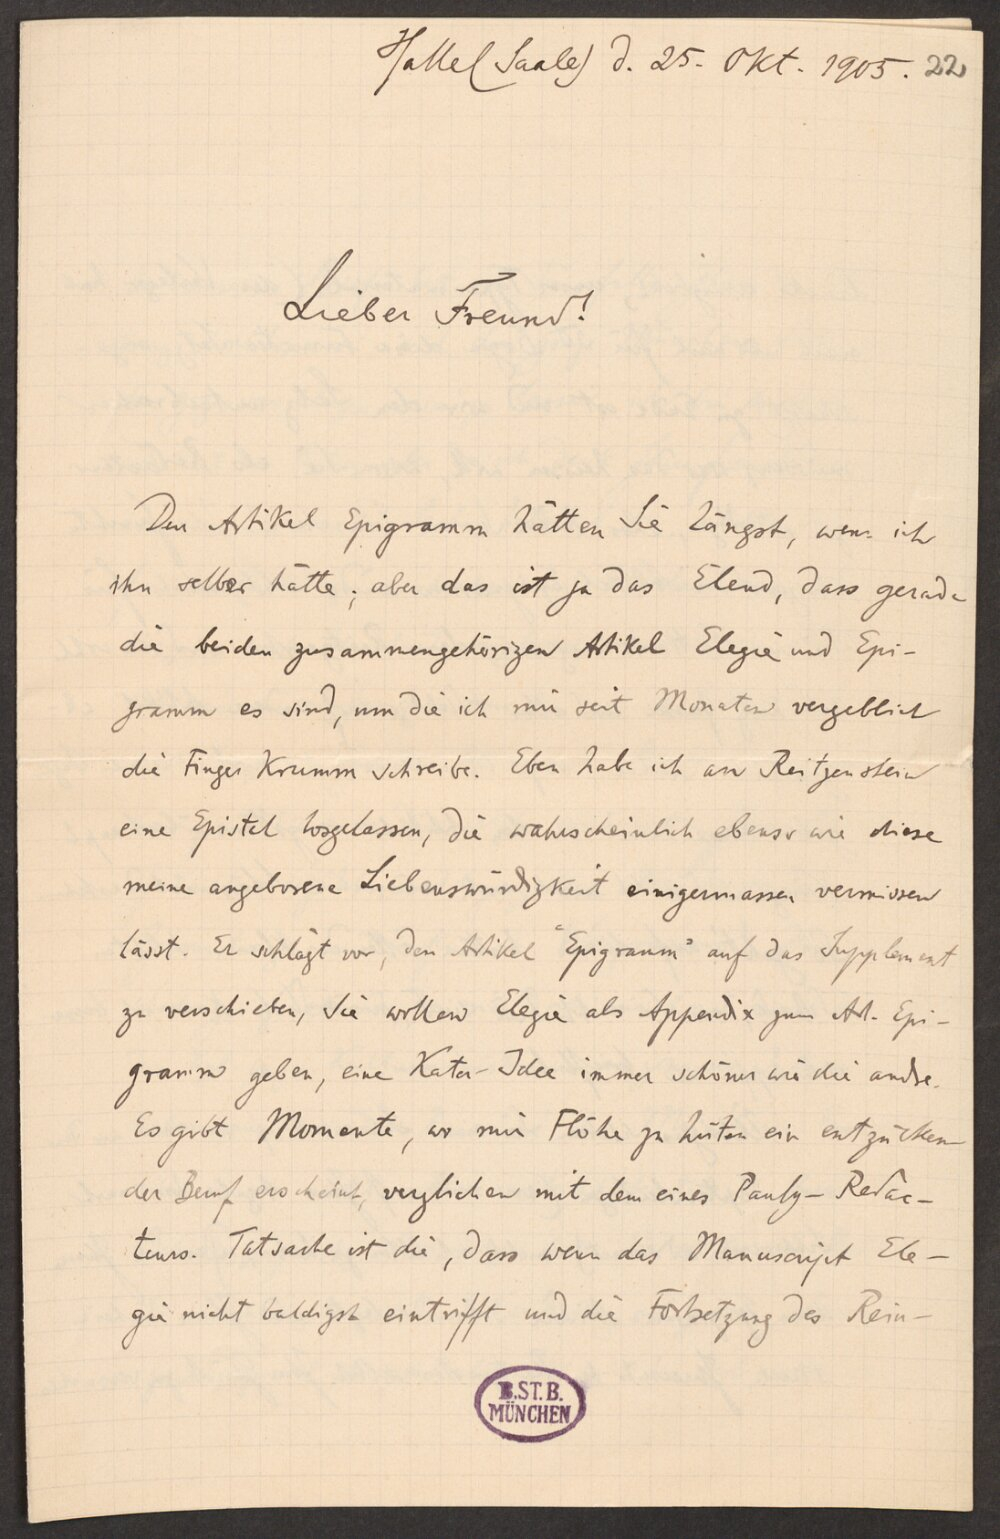 Halle (Saale) d. 25. Okt. 1905. 22
Lieber Freund!
Den Artikel Epigramm hätten Sie längst, wenn ich
ihn selber hätte; aber das ist ja das Elend, dass gerade
die beiden zusammengehörigen Artikel Elegie und Epi-
gramm es sind, um die ich mir seit Monaten vergeblich
die Finger krumm schreibe. Eben habe ich an Reitzenstein
eine Epistel losgelassen, die wahrscheinlich ebenso wie diese
meine angeborene Liebenswürdigkeit einigermassen vermissen
lässt. Er schlägt vor, den Artikel "Epigramm" auf das Supplement
zu verschieben, Sie wollen Elegie als Appendix zum Art. Epi-
gramm geben, eine Kater-Idee immer schöner wie die andre.
Es gibt Momente, wo mir Flöhe zu hüten ein entzücken-
der Beruf erscheint, verglichen mit dem eines Pauly-Redac-
teurs. Tatsache ist die, dass wenn das Manuscript Ele-
gie nicht baldigst eintrifft und die Fortsetzung des Rein-
B.ST.B.
MÜNCHEN